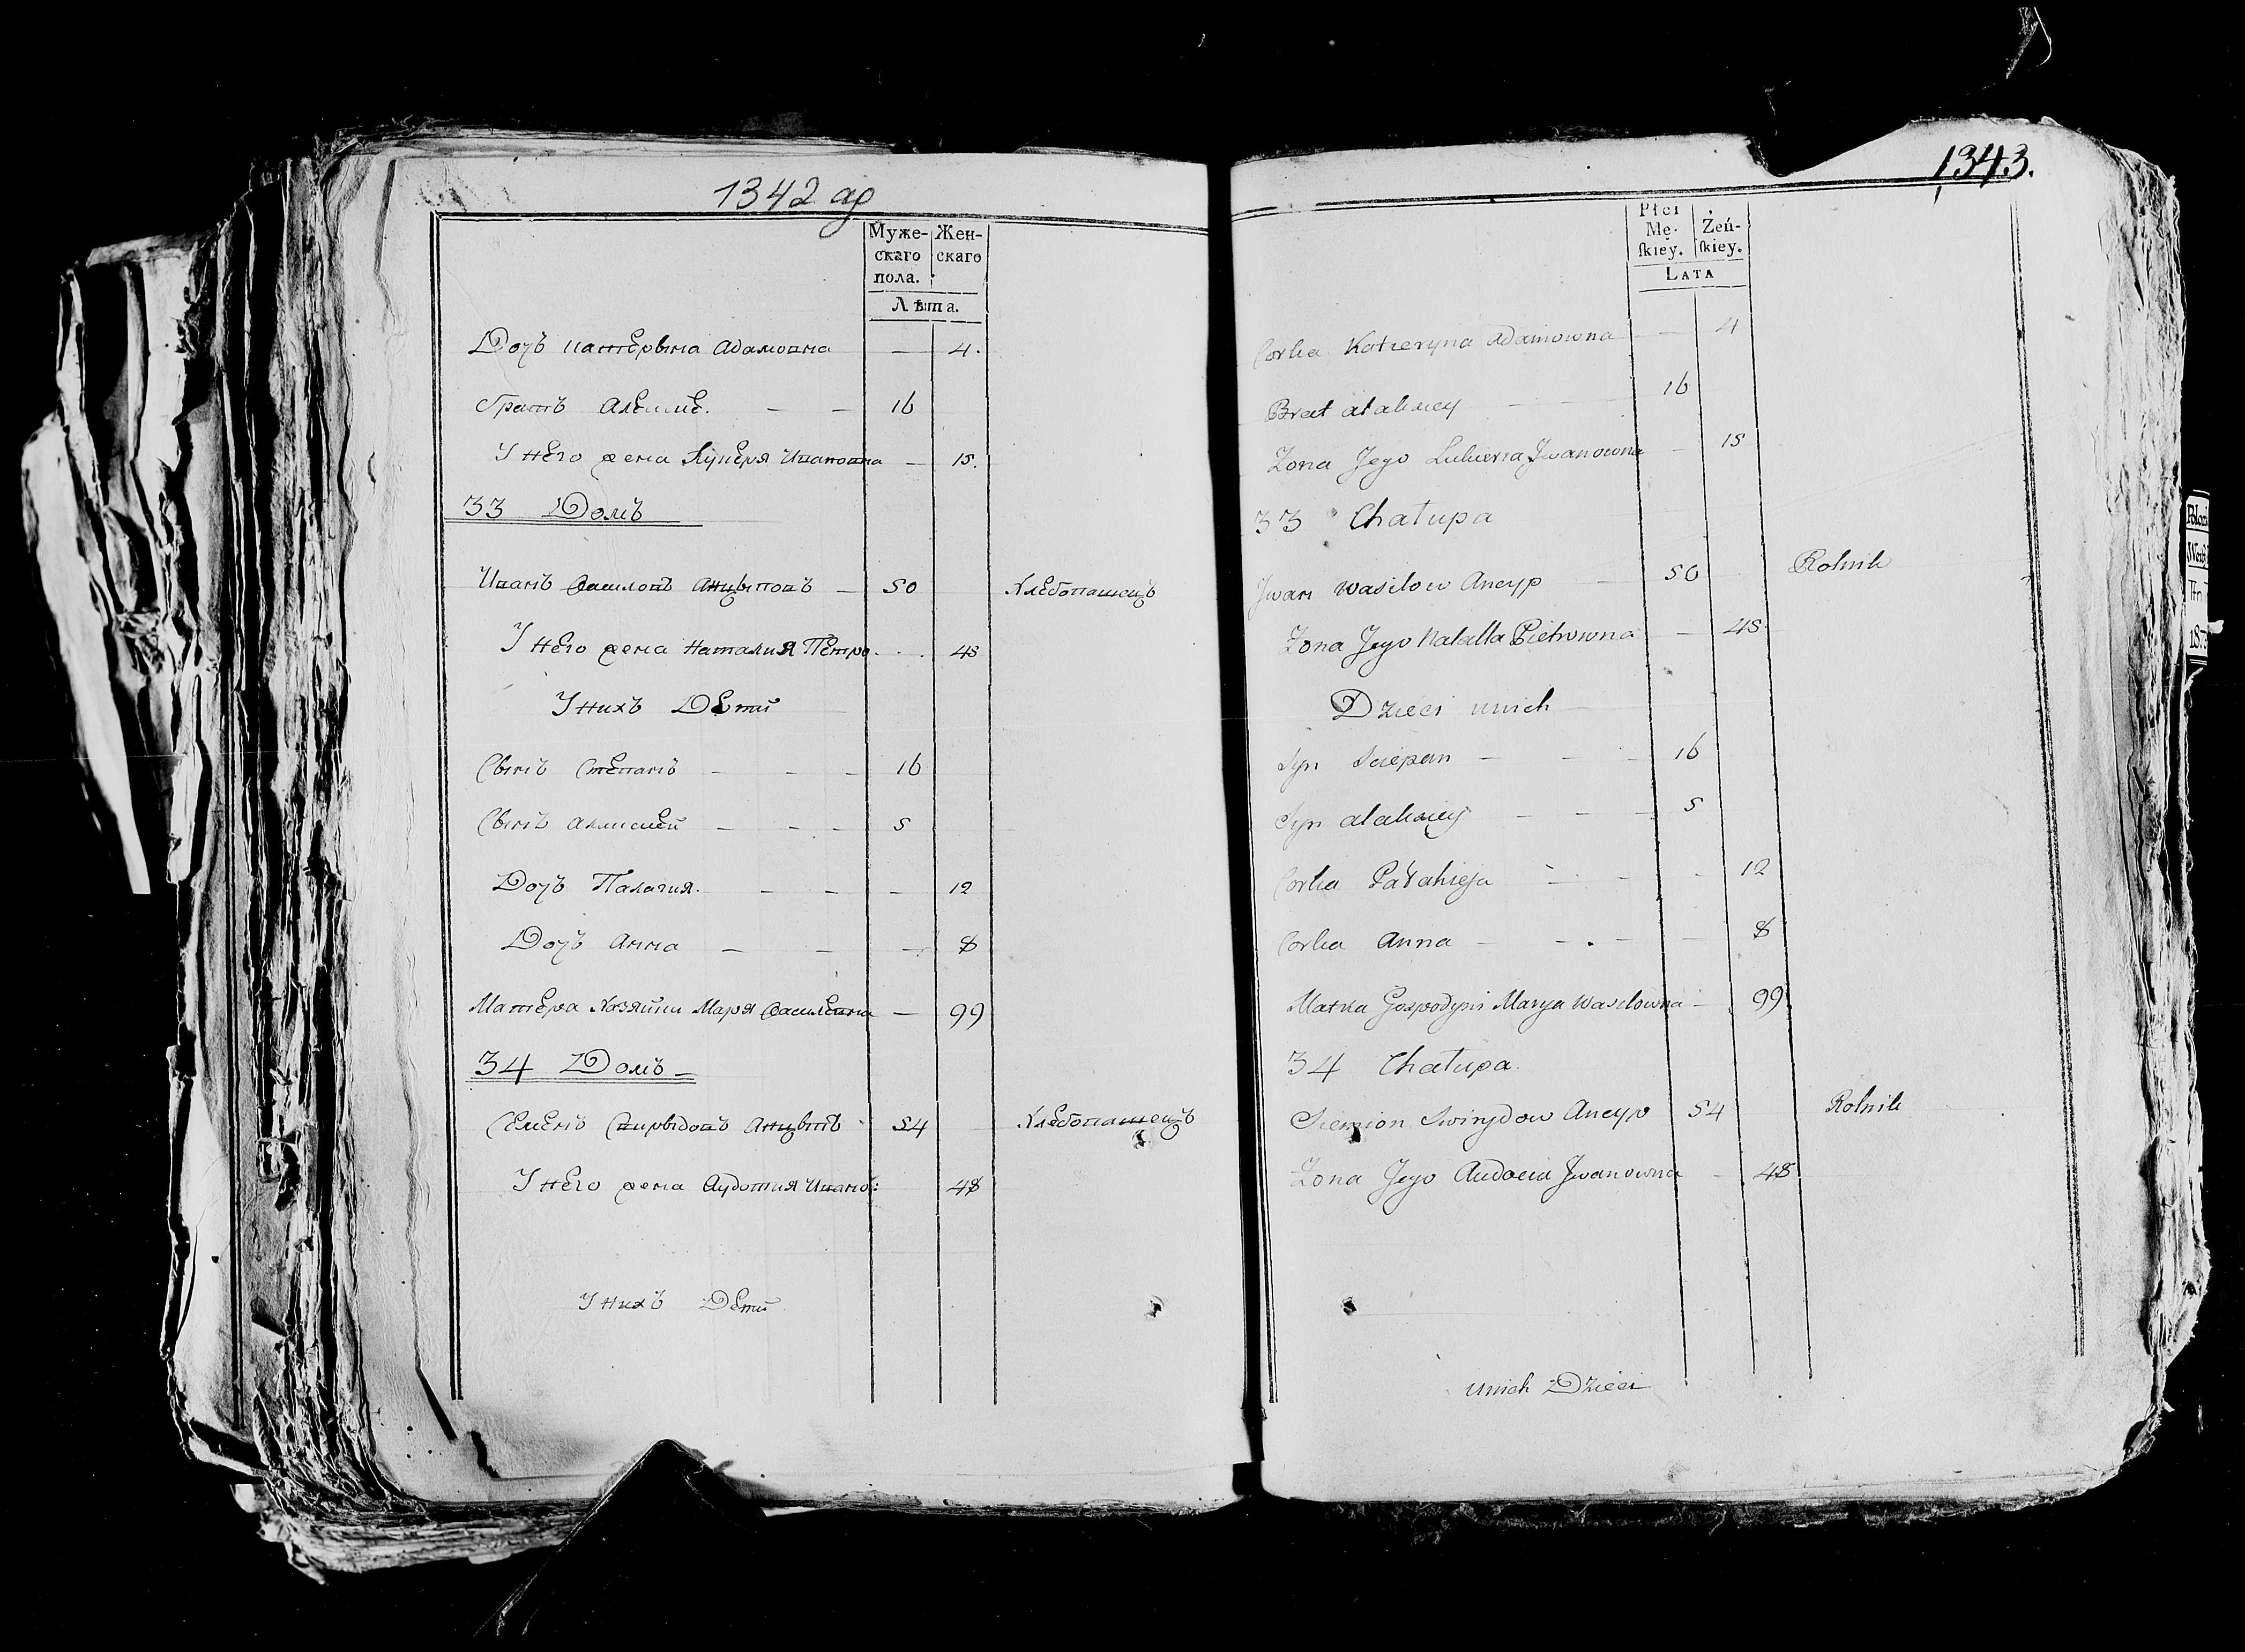 1342 ад
Муже-
скаго
пола.
Жен-
скаго
Лѣта.
Дочъ Катерына Адамовна — 4.
Братъ Алексѣ. — — 16
У него жена Лукеря Ивановна — 15.
33 Домъ
Иванъ Василовъ Анцыповъ — 50 Хлебопашецъ
У него жена Наталия Петро. 45
У нихъ Дети
Сынъ Степанъ — — — 16
Сынъ Алексей — — — 5
Дочъ Палагия. — — — 12
Дочъ Анна — — — 8
Матера Хозяйки Маря Василевна — 99
34 Домъ —
Семенъ Свирыдовъ Анцыпъ 54 Хлебопашецъ
У него жена Аудотия Иванов: 48
У нихъ Дети
1343.
Płci
Mę-
ſkiey.
Żeń-
ſkiey.
LATA
Corka Katzeryna Adamowna — 4
Brat alaksiey — — 16
Zona Jego Lukierra Jwanowna — 15
33 Chałupa
Jwan Wasilow Ancyp — 50 Rolnik
Zona Jego Natalla Pietrowna — 45
Dzieci unich
Syn Sciepan — — — 16
Syn alaksiey — — — 5
Corka Pałahieja — — — 12
Corka Anna — — — 8
Matka Gospodyni Marya Wasilowna — 99
34 Chałupa.
Siemion Swirydow Ancyp 54 Rolnik
Zona Jego Audocia Jwanowna — 48
unich Dzieci